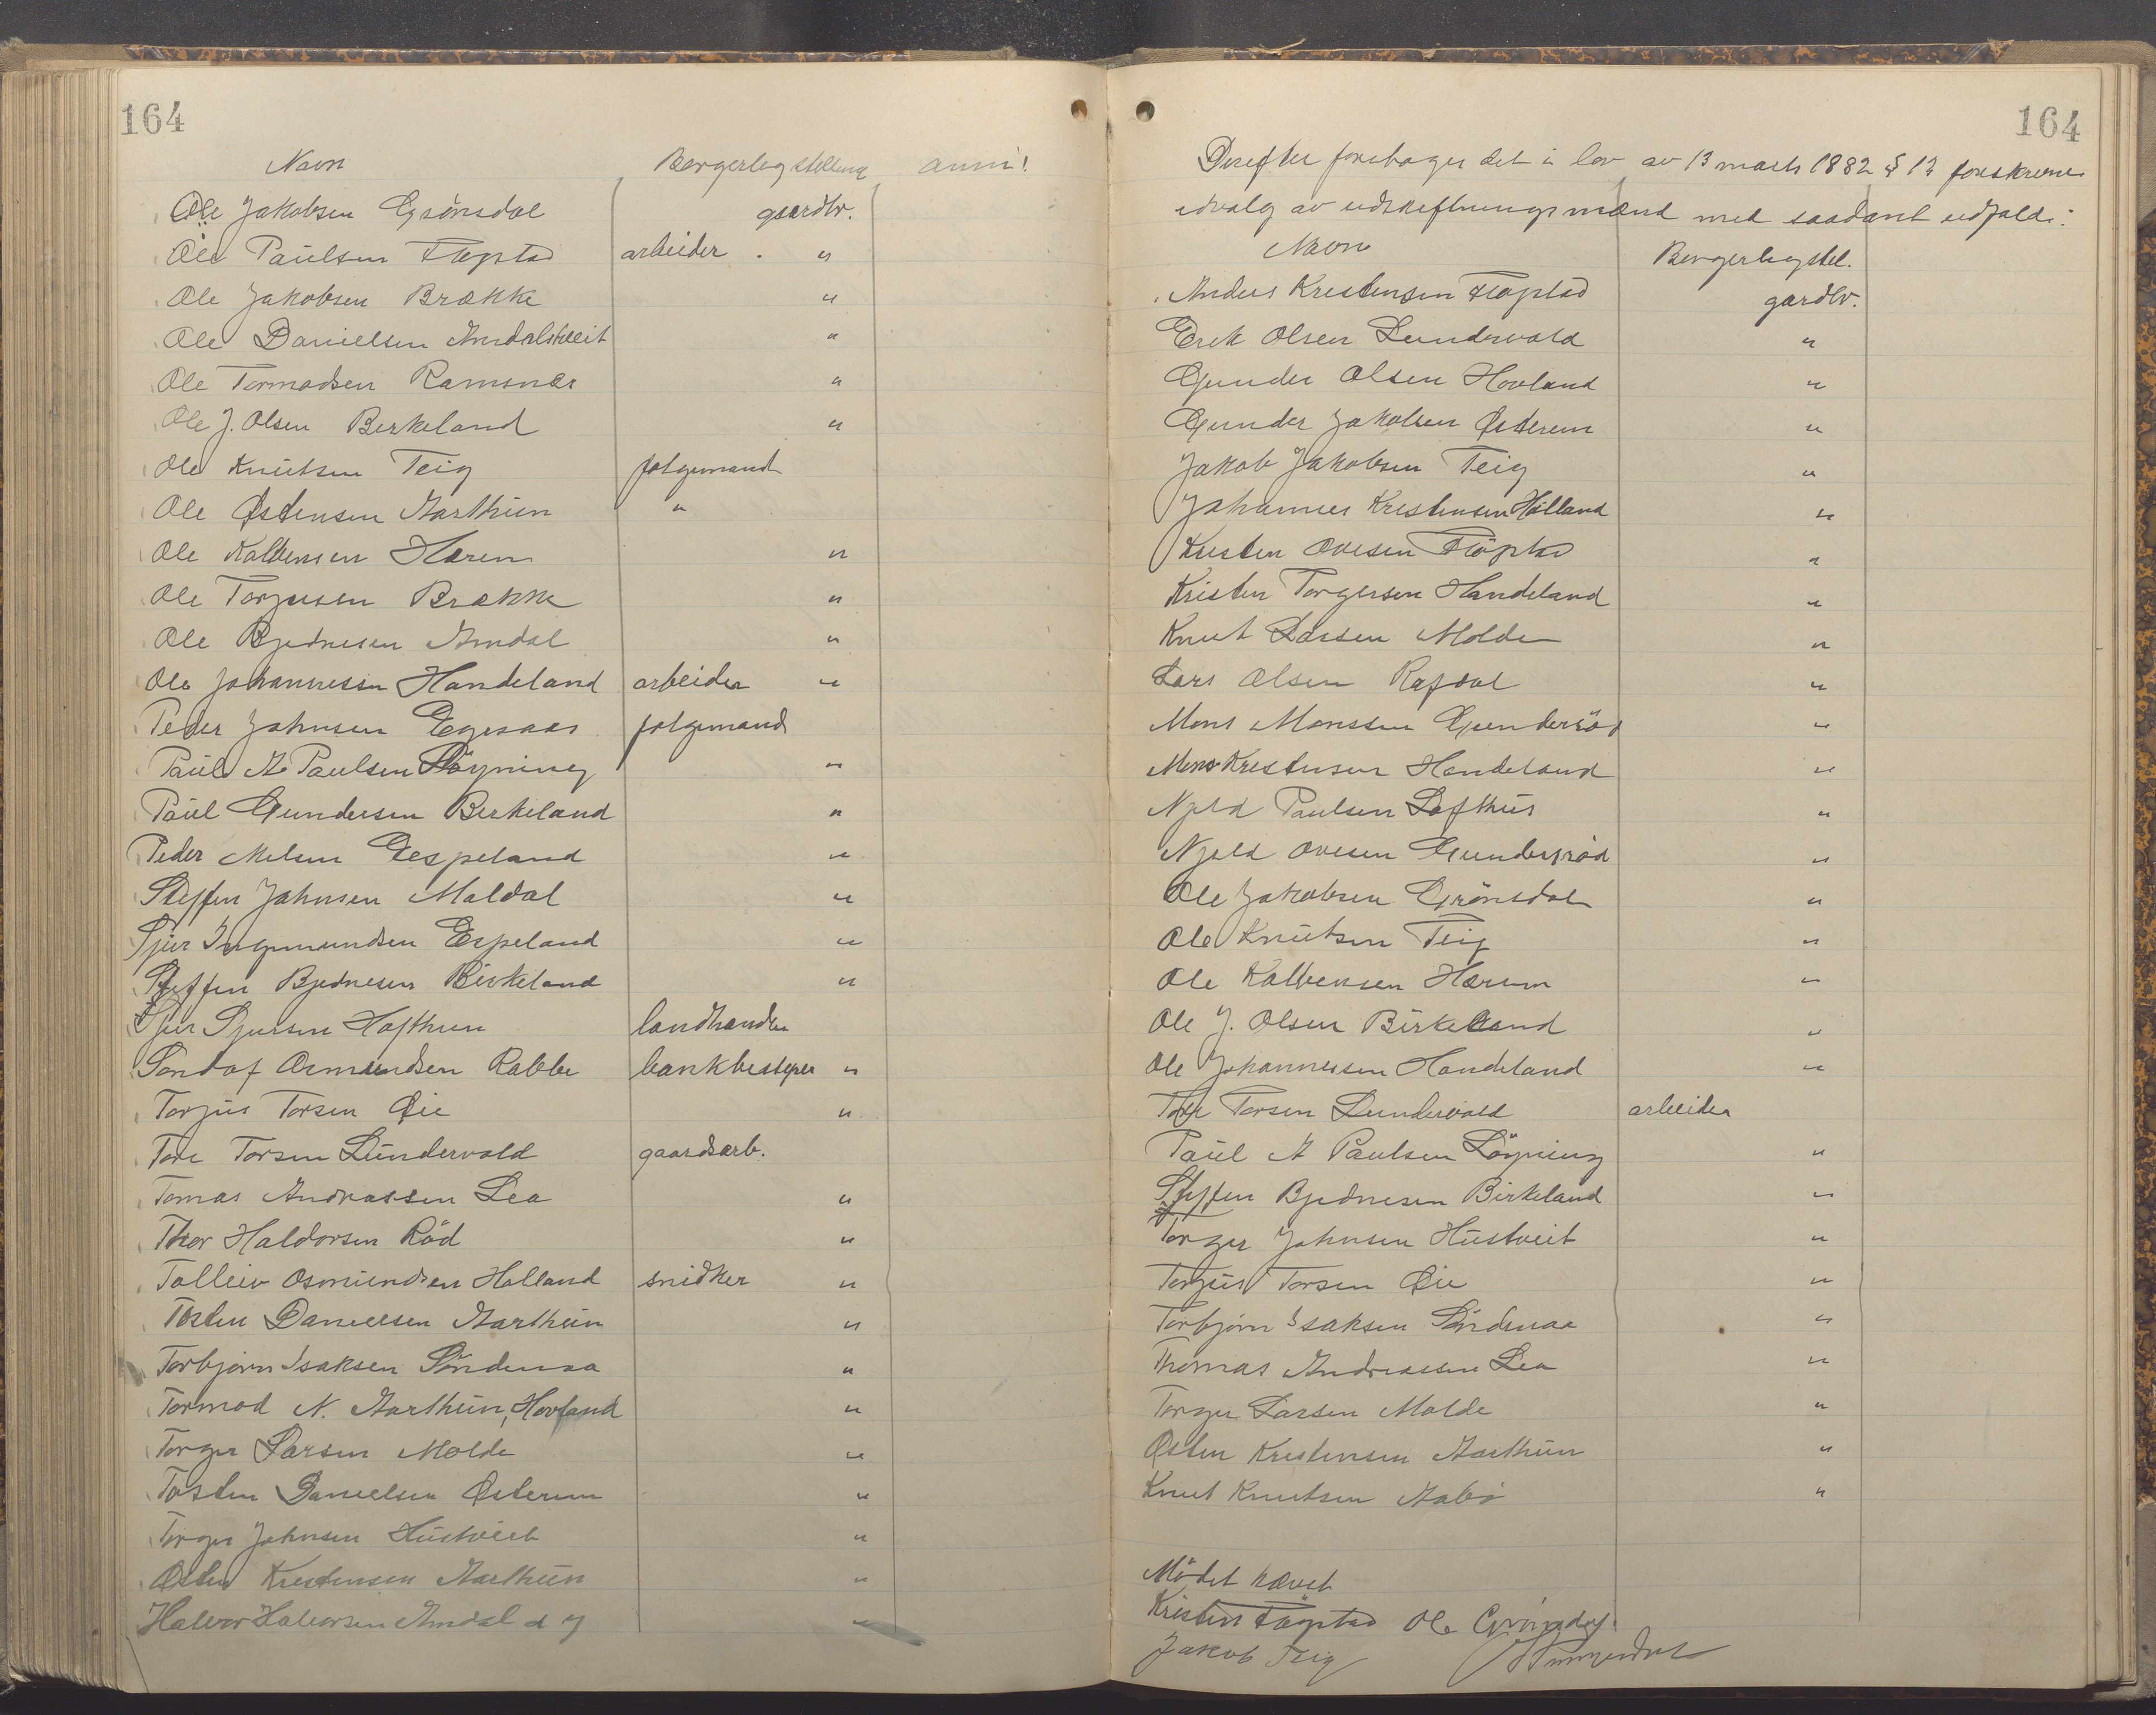 164
Navn Borgerlig stilling anm!
Ole Jakobsen Grönsdal gaardbr.
Ole Paulsen Fløgstad arbeider . "
Ole Jakobsen Brække "
Ole Danielsen Amdalstveit "
Ole Tormodsen Ramsnes "
Ole J. Olsen Berkeland "
Ole Knutsen Teig folgemand
Ole Østensen Aarthun "
Ole Kolbensen Hærem "
Ole Torjusen Brække "
Ole Bjednesen Amdal "
Ole Johannessen Handeland arbeider "
Peder Johnsen Egesaas folgemand
Paul A Paulsen Löyning "
Paul Gundersen Berkeland "
Peder Nelsen Espeland "
Steffen Johnsen Maldal "
Sjur Ingmundsen Espeland "
Steffen Bjednesen Birkeland "
Sjur Sjursen Hafthun landhandler
Sondof Osmundsen Rabbe bankbestyrer "
Torjus Torsen Øie "
Tore Torsen Lundervold gaardsarb.
Tomas Andreassen Lea "
Thor Haldorsen Röd "
Tolleiv Osmundsen Holland snidker "
Tosten Danielsen Aarthun "
Torbjørn Isaksen Söndenaa "
Tormod N. Aarthun, Hovland "
Torger Larsen Molde "
Tosten Danielsen Østerem "
Torger Johnsen Hustveit "
Østen Kristensen Aarthun "
Halvor Halvorsen Amdal d y "
164
Derefter foretages det i lov av 13 marts 1882 § 12 foreskrevne
udvalg av udskiftningsmænd med saadant udfald:
Navn Borgerlig stil.
Anders Kristensen Fløgstad gardbr.
Erik Olsen Lundervold "
Gunder Olsen Hovland "
Gunder Jakobsen Østerem "
Jakob Jakobsen Teig "
Johannes Kristensen Holland "
Kristen Ovesen Flögstad "
Kristen Torgersen Handeland "
Knut Larsen Molde "
Lars Olsen Rafdal "
Mons Monssen Gundersöd "
Mons Kristensen Handeland "
Njeld Paulsen Lofthus "
Njeld Ovesen Gundersröd "
Ole Jakobsen Grönsdal "
Ole Knutsen Teig "
Ole Kolbensen Hærem "
Ole J. Olsen Birkeland "
Ole Johannessen Handeland "
Tore Torsen Lundervold arbeider
Paul A Paulsen Löyning "
Steffen Bjednesen Birkeland "
Torger Johnsen Hustveit "
Torjus Torsen Øie "
Torbjörn Isaksen Söndenaa "
Thomas Andreassen Lea "
Torger Larsen Molde "
Østen Kristensen Aarthun "
Knut Knutsen Aabö "
Mödet hævet
Kristen Fløgstad Ole Grönsdal
Jakob Teig